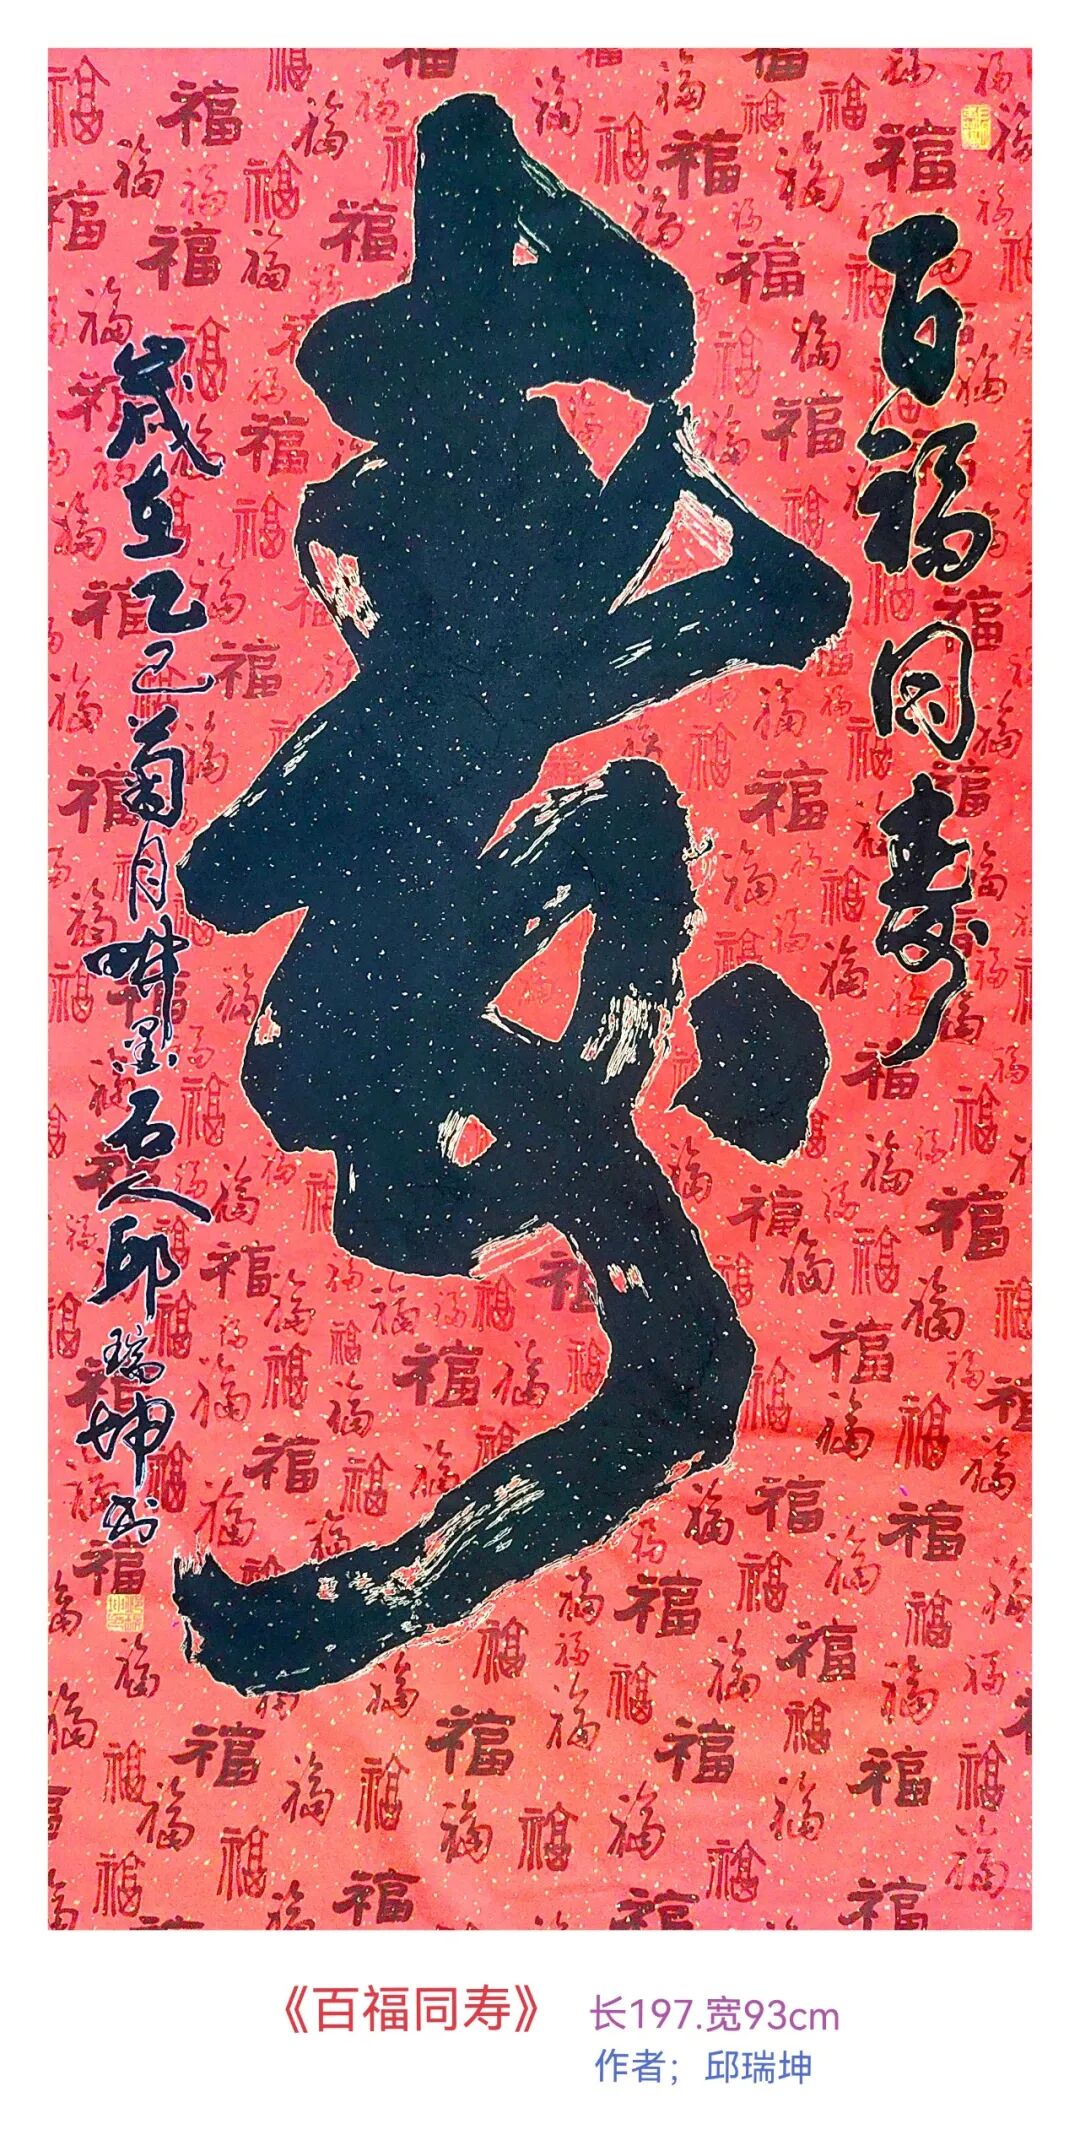 百福同寿
寿
岁在乙巳菊月
墨石人邱瑞坤书
《百福同寿》 长197.宽93cm
作者；邱瑞坤